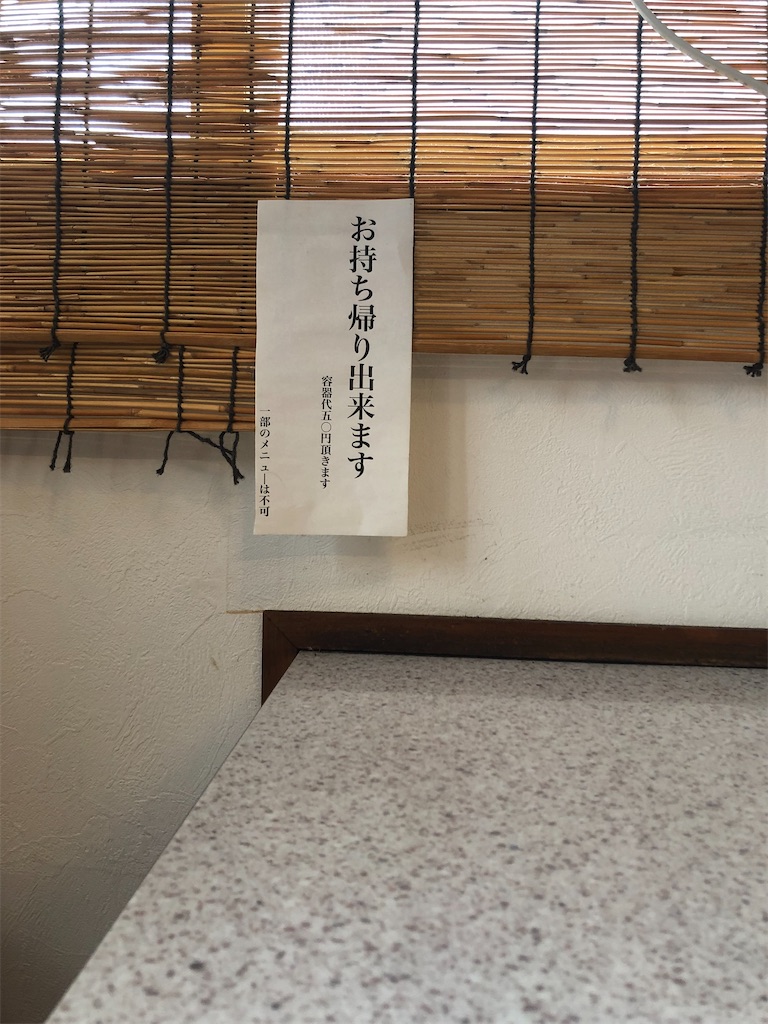 お持ち帰り出来ます
容器代五〇円頂きます
一部のメニューは不可